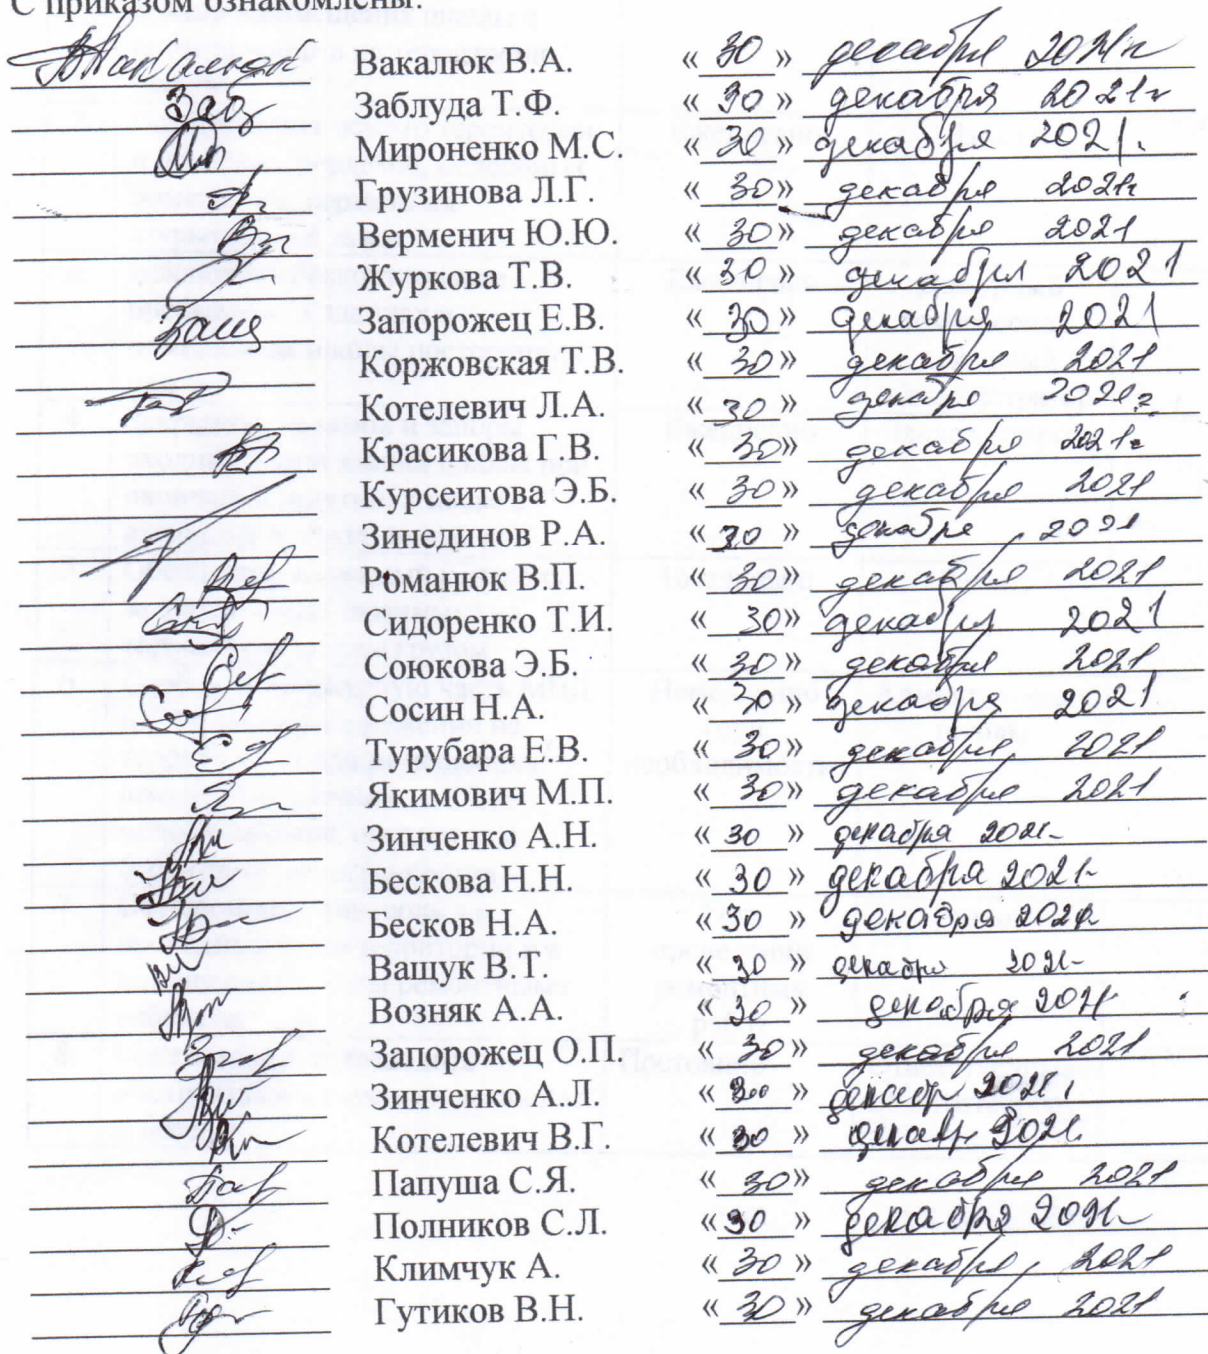 С приказом ознакомлены:
Вакалюк В.А. « 30 » декабря 2021г
Заблуда Т.Ф. « 30 » декабря 2021г
Мироненко М.С. « 30 » декабря 2021.
Грузинова Л.Г. « 30 » декабря 2021г
Верменич Ю.Ю. « 30 » декабря 2021
Журкова Т.В. « 30 » декабря 2021
Запорожец Е.В. « 30 » декабря 2021
Коржовская Т.В. « 30 » декабря 2021
Котелевич Л.А. « 30 » декабря 2021г.
Красикова Г.В. « 30 » декабря 2021г.
Курсеитова Э.Б. « 30 » декабря 2021
Зинединов Р.А. « 30 » декабря 2021
Романюк В.П. « 30 » декабря 2021
Сидоренко Т.И. « 30 » декабря 2021
Союкова Э.Б. « 30 » декабря 2021
Сосин Н.А. « 30 » декабря 2021
Турубара Е.В. « 30 » декабря 2021
Якимович М.П. « 30 » декабря 2021
Зинченко А.Н. « 30 » декабря 2021
Бескова Н.Н. « 30 » декабря 2021г
Бесков Н.А. « 30 » декабря 2021
Ващук В.Т. « 30 » декабря 2021
Возняк А.А. « 30 » декабря 2021
Запорожец О.П. « 30 » декабря 2021
Зинченко А.Л. « 30 » декабр 2021
Котелевич В.Г. « 30 » декабр 2021
Папуша С.Я. « 30 » декабря 2021
Полников С.Л. « 30 » декабря 2021
Климчук А. « 30 » декабря 2021
Гутиков В.Н. « 30 » декабря 2021